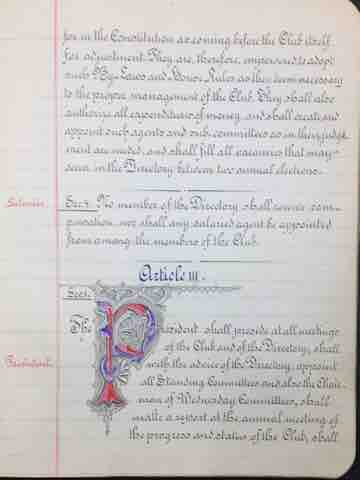 for in the Constitution as coming before the Club itself
for adjustment. They are, therefore, empowered to adopt
such By-Laws and House Rules as they deem necessary
to the proper management of the Club. They shall also
authorize all expenditures of money, and shall create and
appoint such agents and sub-committees as in their judg-
ment are needed, and shall fill all vacancies that may
occur in the Directory between two annual elections.
Salaries.
Sec. 4. No member of the Directory shall receive com-
pensation, nor shall any salaried agent be appointed
from among the members of the Club.
Article III.
Sec. 1.
President.
The President shall preside at all meetings
of the Club and of the Directory; shall
with the advice of the Directory, appoint
all Standing Committees and also the Chair-
man of Wednesday Committees, shall
make a report at the annual meeting of
the progress and status of the Club, shall